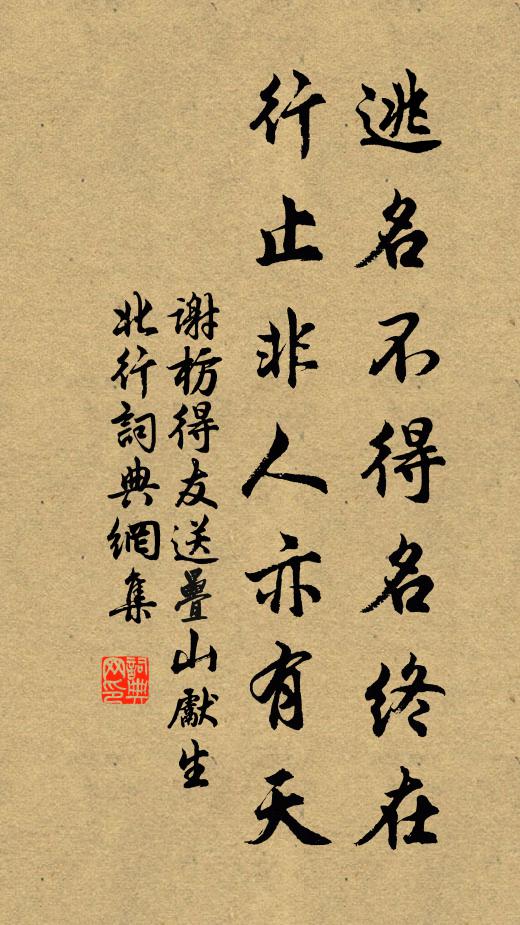 逃名不得名終在
行止非人亦有天
谢枋得友送疊山獻生
北行詞典網集
詞典
网印